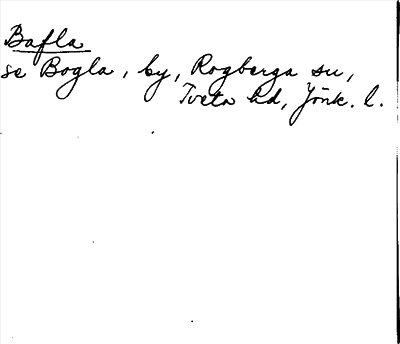 Bafla
se Bogla, by, Rogberga sn,
Tveta hd, Jönk. l.